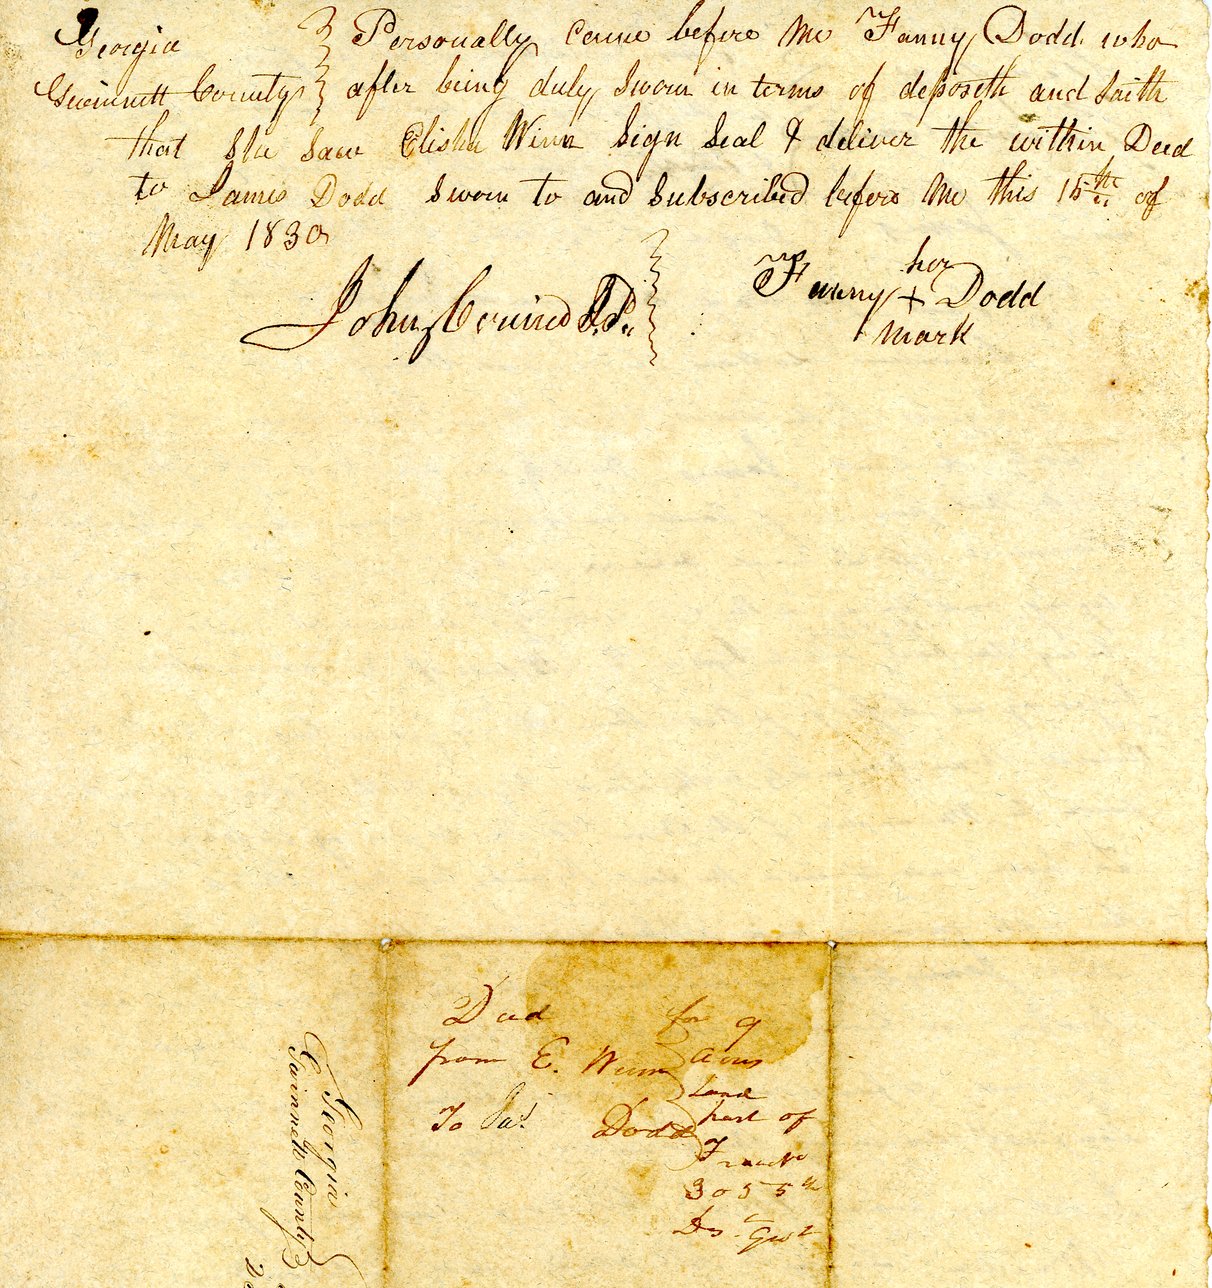 Georgia } Personally Came before Me Fanny Dodd who
Gwinnett County } after being duly Sworn in terms of deposeth and Saith
that She Saw Elisha Winn Sign Seal & deliver the within Deed
to James Dodd Sworn to and Subscribed before Me this 15th of
May 1830
her
John J.P. } Fanny + Dodd
Mark
Deed for 9
from E. Winn Acres
Land
To Jas Dodd part of
Fract
305 5th
Ds Gwt
Georgia
Gwinnett County }